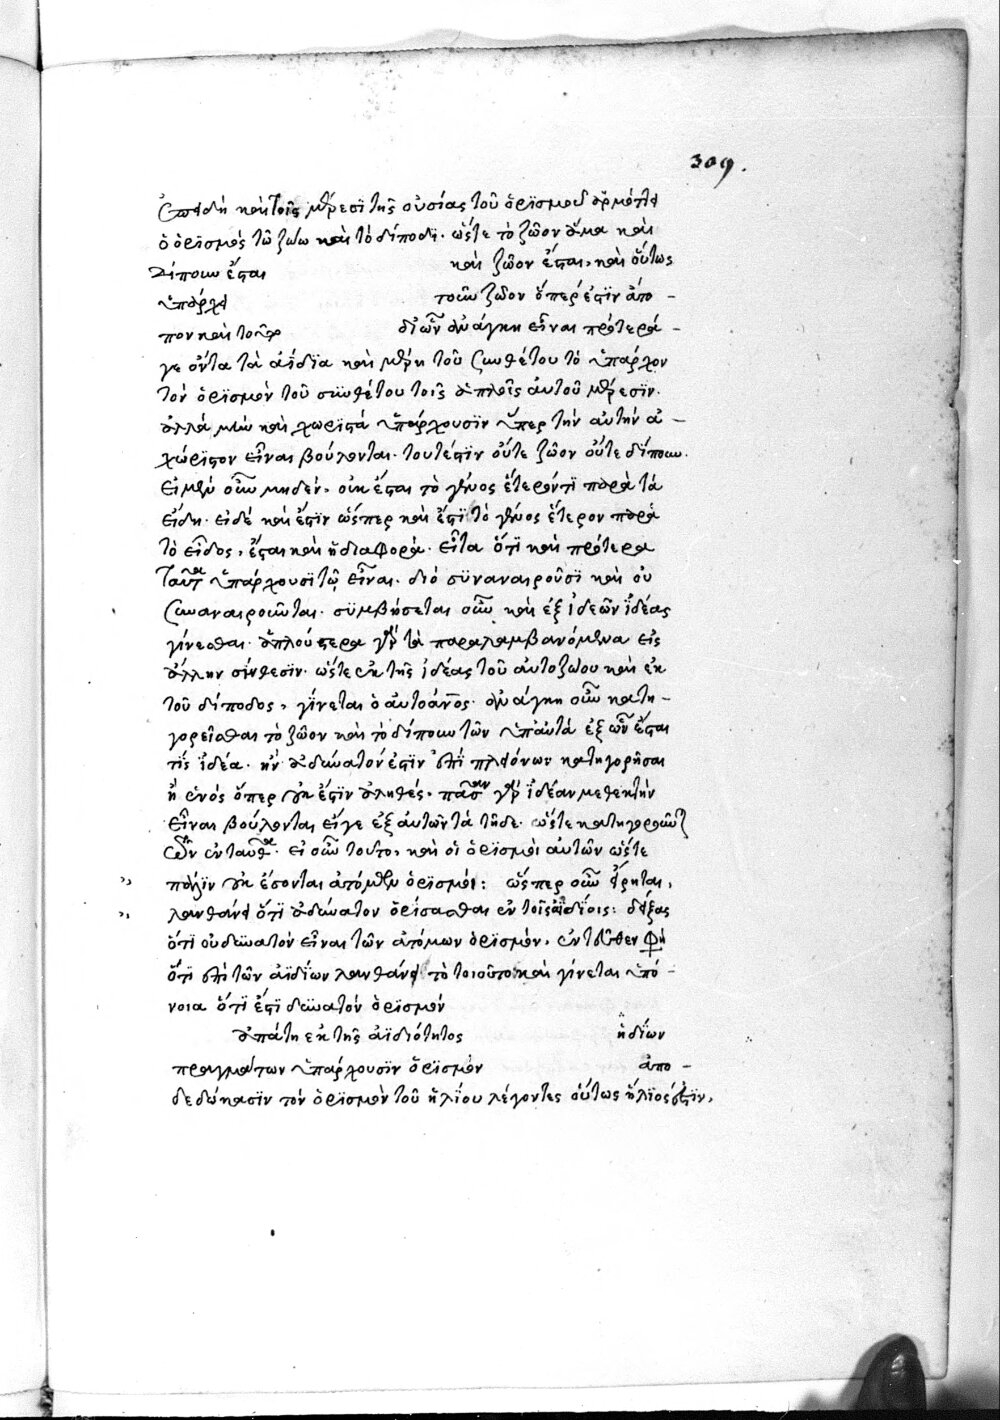 309.
ἐπειδὴ καὶ τοῖς μέρεσι τῆς οὐσίας τοῦ ὁρισμοῦ ἁρμόττει
ὁ ὁρισμὸς τῷ ζώῳ καὶ τὸ δίποδι. ὥστε τὸ ζῶον ἅμα καὶ
δίπουν ἔσται καὶ ζῶον ἔσται, καὶ οὕτως
ὑπάρχει τοῦν ζῶον ὅπερ ἐστὶν ἄπο -
πον καὶ το διῶν ἀνάγκη εἶναι πρότερά -
γε ὄντα τὰ ἀΐδια καὶ μέρη τοῦ συνθέτου τὸ ὑπάρχον
τὸν ὁρισμὸν τοῦ συνθέτου τοῖς ἁπλοῖς αὐτοῦ μέρεσιν.
ἀλλὰ μὴν καὶ χωριστὰ ὑπάρχουσιν ὕπερ τὴν αὐτὴν ἀ -
χώριστον εἶναι βούλονται. τουτέστιν οὔτε ζῶον οὔτε δίπουν.
εἰ μὲν οὖν μηδέν, οὐκ ἔσται τὸ γένος ἕτερόν τι παρὰ τὰ
εἴδη. εἰ δέ καὶ ἔστιν ὥσπερ καὶ ἔστι τὸ γένος ἕτερον παρὰ
τὸ εἶδος, ἔσται καὶ ἡ διαφορά. εἶτα ὅτι καὶ πρότερα
ταῦτα ὑπάρχουσι τῷ εἶναι. διὸ συναναιροῦσι καὶ οὐ
συναναιροῦνται. συμβήσεται οὖν καὶ ἐξ ἰδεῶν ἰδέας
γίνεσθαι. ἁπλούστερα γὰρ τὰ παραλαμβανόμενα εἰς
ἄλλην σύνθεσιν. ὥστε ἐκ τῆς ἰδέας τοῦ αὐτοζώου καὶ ἐκ
τοῦ δίποδος, γίνεται ὁ αὐτοάνος. ἀνάγκη οὖν κατη -
γορεῖσθαι τὸ ζῶον καὶ τὸ δίπουν τῶν ὑπ' αὐτὰ ἐξ ὧν ἔσται
τίς ἰδέα. ἣν ἀδύνατόν ἐστιν ἐπὶ πλειόνων κατηγορῆσαι
ἢ ἑνός ὅπερ οὐκ ἐστὶν ἀληθές. πᾶσαν γὰρ ἰδέαν μεθεκτὴν
εἶναι βούλονται εἴγε ἐξ αὐτῶν τὰ τῇδε. ὥστε κατηγοροῦντ
ἐνταῦθα. εἰ οὖν τοῦτο, καὶ οἱ ὁρισμοὶ αὐτῶν ὥστε
πάλιν οὐκ ἔσονται ἀτόμων ὁρισμοί: ὥσπερ οὖν εἴρηται,
λανθάνει ὅτι ἀδύνατον ὁρίσασθαι ἐν τοῖς ἀϊδίοις: δείξας
ὅτι οὐ δυνατὸν εἶναι τῶν ἀτόμων ὁρισμόν, ἐντεῦθεν φη
ὅτι ἐπὶ τῶν ἀϊδίων λανθάνει τὸ τοιοῦτο καὶ γίνεται ὑπό -
νοια ὅτι ἔστι δυνατόν ὁρισμόν
ἀπάτη ἐκ τῆς ἀϊδιότητος ἡδίων
πραγμάτων ὑπάρχουσιν ὁρισμόν ἀπο -
δεδώκασιν τὸν ὁρισμὸν τοῦ ἡλίου λέγοντες οὕτως ἥλιός ἐστιν,